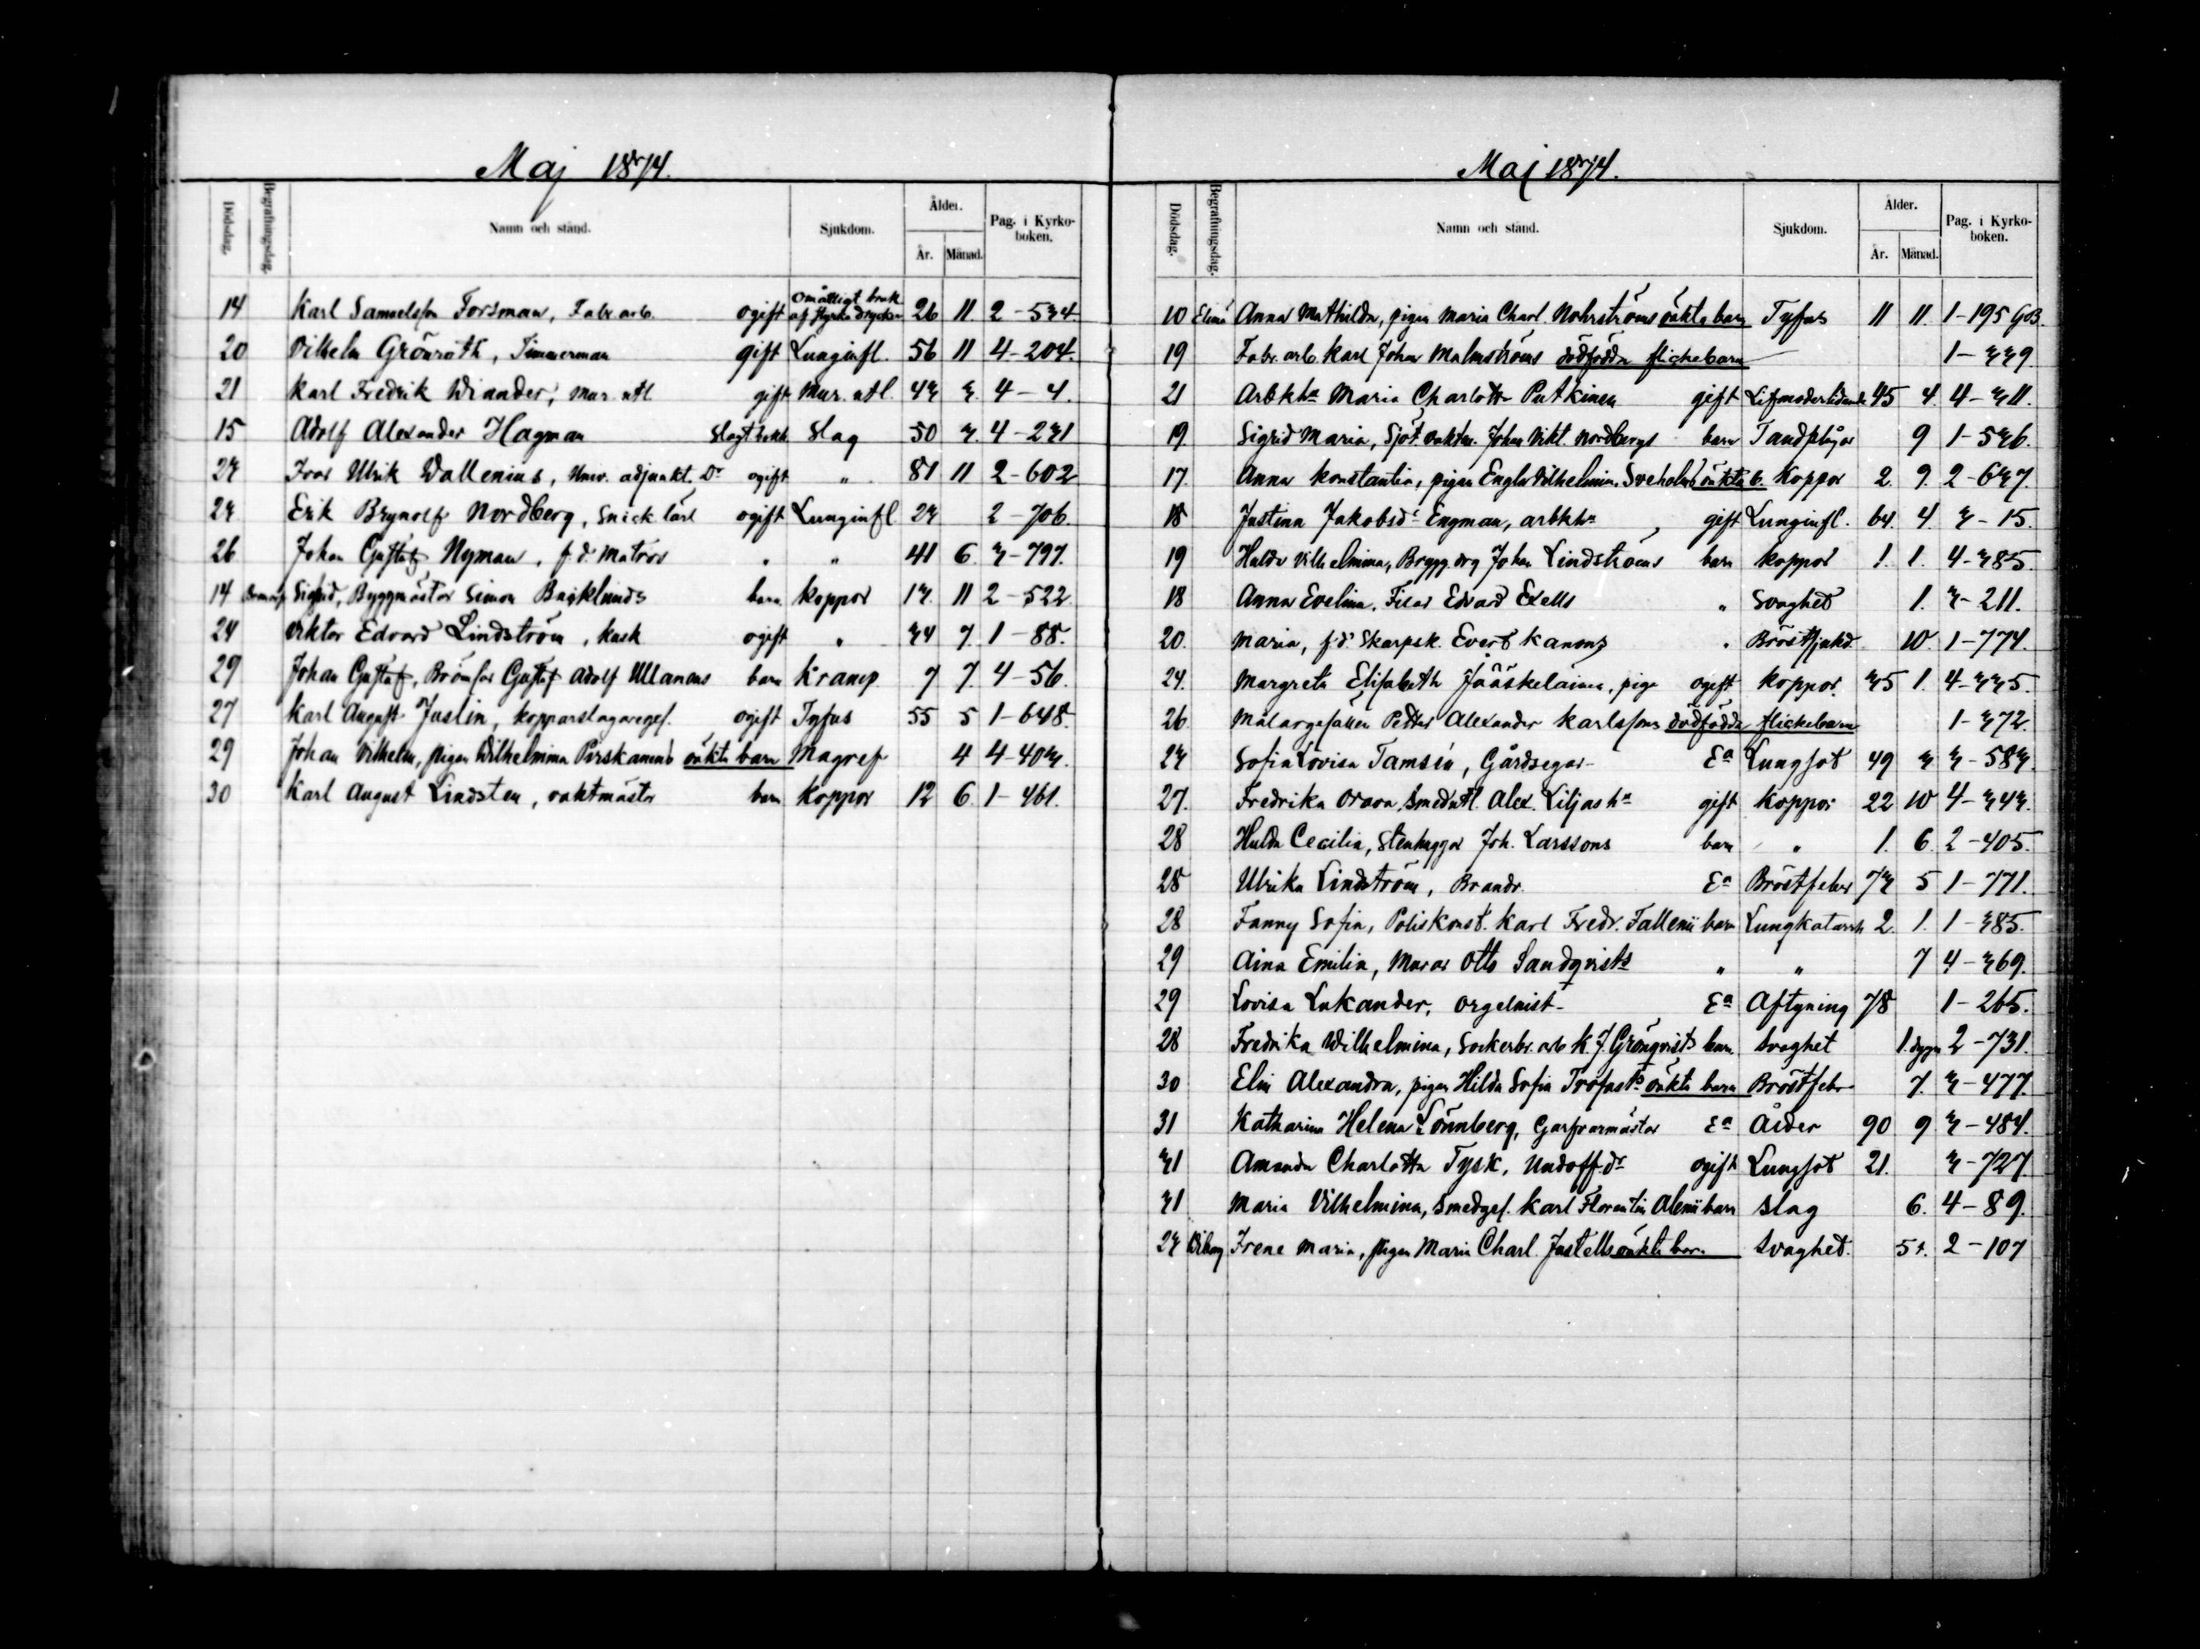 Maj 1874.
Dödsdag. Begrafningsdag. Namn och stånd. Sjukdom. Ålder. År. Månad. Pag. i Kyrko-boken.
14 Karl Samuelsson Forsman, Fabr. arb. ogift Omåttligt bruk af starka drycker 26 11 2-534
20 Vilhelm Grönroth, Timmerman gift Lunginfl. 56 11 4-204.
21 Karl Fredrik Wiander, Mur. utl. gift 43 3. 4-4.
15 Adolf Alexander Hagman Slag 50 3. 4-231
23 Ivar Ulrik Wallenius, Univ. adjunkt. Dr ogift " 81 11 2-602
23 Erik Brynolf Nordberg, Snick. lärl. ogift Lunginfl 23 2-706.
26 Johan Gustaf Nyman, f.d. Matros " " 41 6. 3-797.
14 Sigrid, Byggmästar Simon Bäcklunds barn koppor 13. 11 2-522
24 Viktor Edvard Lindström, kusk ogift " 34 7. 1-88.
29 Johan Gustaf, Gustaf Adolf Ullanens barn kramp 7 7. 4-56.
27 Karl August Juslin, kopparslagareges. ogift Tyfus 55 5 1-648.
29 Johan Vilhelm, pigan Wilhelmina Pirskanens oäkta barn Magref 4 4-403.
30 Karl August Lindsten, vaktmästar barn koppor 12 6. 1-461.
Maj 1874.
Dödsdag. Begrafningsdag. Namn och stånd. Sjukdom. Ålder. År. Månad. Pag. i Kyrko-boken.
10 Elimä Anna Mathilda, pigan Maria Charl. Nohrströms oäkta barn Tyfus 11 11. 1-195
19 Fabr. arb. Karl Johan Malmströms dödfödda flickebarn 1-339.
21 Arbkha Maria Charlotta Putkinen gift Lifmoderlidande 45 4. 4-311.
19. Sigrid Maria, Johan Vikt. Nordbergs barn Tandplågor 9 1-536.
17. Anna Konstantia, pigan Engla Vilhelmina Sveholms oäkta b. koppor 2. 9. 2-637.
18 Justina Jakobsdr Engman, arbkha gift Lunginfl. 64. 4. 3-15.
19 Hulda Vilhelmina, Brygg. drg Johan Lindströms barn koppor 1. 1. 4-385.
18 Anna Evelina, Fisar Edvard Exells " Svaghet 1. 3-211.
20. Maria, f.d. Skarpsk. Evert Kanons " Bröstsjukd. 10. 1-774.
24. Margreta Elisabeth Jääskeläinen, piga ogift koppor. 35 1. 4-335.
26. Målargesällen Petter Alexander Karlssons dödfödda flickebarn 1-372.
23 Sofia Lovisa Tamsén, Gårdsegar- Ea Lungsot 49 3 3-583.
27. Fredrika Orava, Smedutl. Alex. Liljas ha gift koppor 22 10 4-343.
28 Hulda Cecilia, Stenhuggar Joh. Larssons barn " 1. 6. 2-405.
28 Ulrika Lindström, Brandv. Ea Bröstfeber 73 5 1-771.
28 Fanny Sofia, Poliskonst. Karl Fredr. Fallenii barn Lungkatarrh 2. 1. 1-385.
29 Aina Emilia, Murar Otto Sandqvists " " 7 4-369.
29 Lovisa Lukander, orgelnist- Ea Aftyning 78 1-265.
28 Fredrika Wilhelmina, Sockerbr. arb. K. J. Grönqvists barn Svaghet 1. dygn 2-731.
30 Elin Alexandra, pigan Hilda Sofia Trofasts oäkta barn Bröstfeber 7. 3-477.
31 Katharina Helena Lönnberg, Garfvarmästar Ea Ålder 90 9 3-484.
31 Amanda Charlotta Tysk, Undoff. dr ogift Lungsot 21. 3-727.
31 Maria Vilhelmina, Smedges. Karl Florentin Alenii barn slag 6. 4-89.
23 Wiborg Irene Maria, pigan Maria Charl. Justells oäkta barn Svaghet. 5 t. 2-107